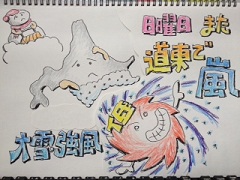 日曜日 また
道東で
嵐
大雪・強風
低